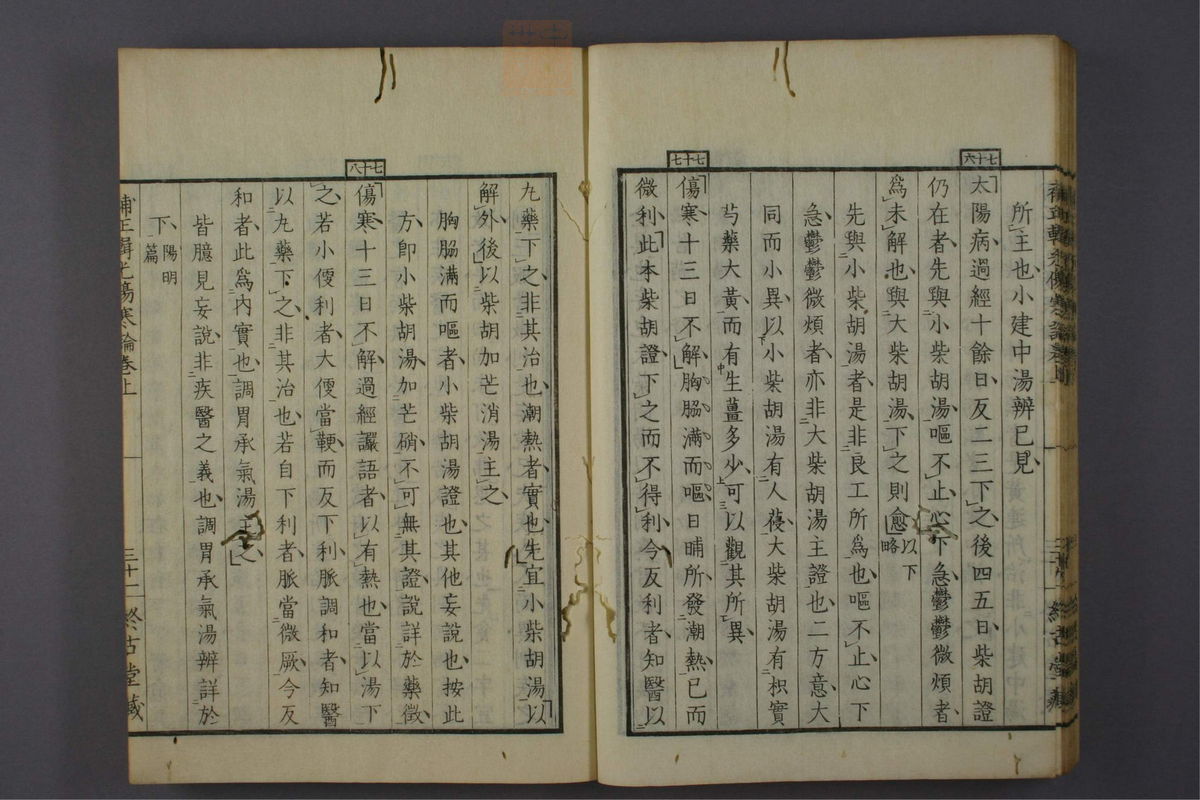 七十六
所主也小建中湯辨已見
太陽病過經十餘日反二三下之後四五日柴胡證
仍在者先與小柴胡湯嘔不止心下急鬱鬱微煩者
爲未解也與大柴胡湯下之則愈以下略
先與小柴胡湯者是非良工所爲也嘔不止心下
急鬱鬱微煩者亦非大柴胡湯主證也二方意大
同而小異以小柴胡湯有人葠大柴胡湯有枳實
芍藥大黃而有生薑多少可以觀其所異
七十七
傷寒十三日不解胸脇滿而嘔日晡所發潮熱已而
微利此本柴胡證下之而不得利今反利者知醫以
丸藥下之非其治也潮熱者實也先宜小柴胡湯以
解外後以柴胡加芒消湯主之
胸脇滿而嘔者小柴胡湯證也其他妄說也按此
方卽小柴胡湯加芒硝不可無其證說詳於藥徵
七十八
傷寒十三日不解過經讝語者以有熱也當以湯下
之若小便利者大便當鞕而反下利脈調和者知醫
以丸藥下之非其治也若自下利者脈當微厥今反
和者此爲內實也調胃承氣湯主之
皆臆見妄說非疾醫之義也調胃承氣湯辨詳於
下陽明篇
補正輯光傷寒論卷上 三十一 終古堂藏